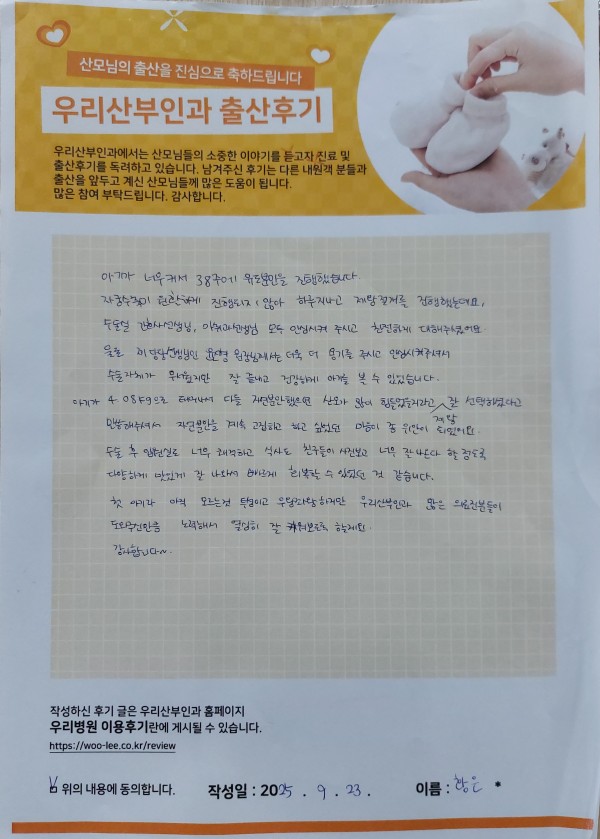 산모님의 출산을 진심으로 축하드립니다
우리산부인과 출산후기
우리산부인과에서는 산모님들의 소중한 이야기를 듣고자 진료 및
출산후기를 독려하고 있습니다. 남겨주신 후기는 다른 내원객 분들과
출산을 앞두고 계신 산모님들께 많은 도움이 됩니다.
많은 참여 부탁드립니다. 감사합니다.
아기가 너무커서 38주에 유도분만을 진행했습니다.
자궁수축이 원활하게 진행되지 않아 하루지나고 제왕절개를 진행했는데요,
수술실 간호사선생님, 마취과선생님 모두 안심시켜 주시고 친절하게 대해주셨어요.
담당선생님인 원장님께서는 더욱 더 용기를 주시고 안심시켜주셔서
수술자체가 무서웠지만 잘 끝내고 건강하게 아기를 볼 수 있었습니다.
아기가 4.08kg으로 태어나서 다들 자연분만했으면 산모가 많이 힘들었을거라고 잘 선택하셨다고
말씀해주셔서 자연분만을 계속 고집하고 하고 싶었던 마음이 좀 위안이 제왕 되었어요.
수술 후 입원실도 너무 쾌적하고 식사도 친구들이 사진보고 너무 잘 나온다 할 정도로
다양하게 맛있게 잘 나와서 빠르게 회복할 수 있었던 것 같습니다.
첫 아기라 아직 모르는것 투성이고 우당탕탕하지만 우리산부인과 많은 의료진분들이
도와주신만큼 노력해서 열심히 잘 키워보도록 할게요.
감사합니다~
작성하신 후기 글은 우리산부인과 홈페이지
우리병원 이용후기란에 게시될 수 있습니다.
https://woo-lee.co.kr/review
위의 내용에 동의합니다. 작성일 : 2025 . 9 . 23 . 이름 : 황 *